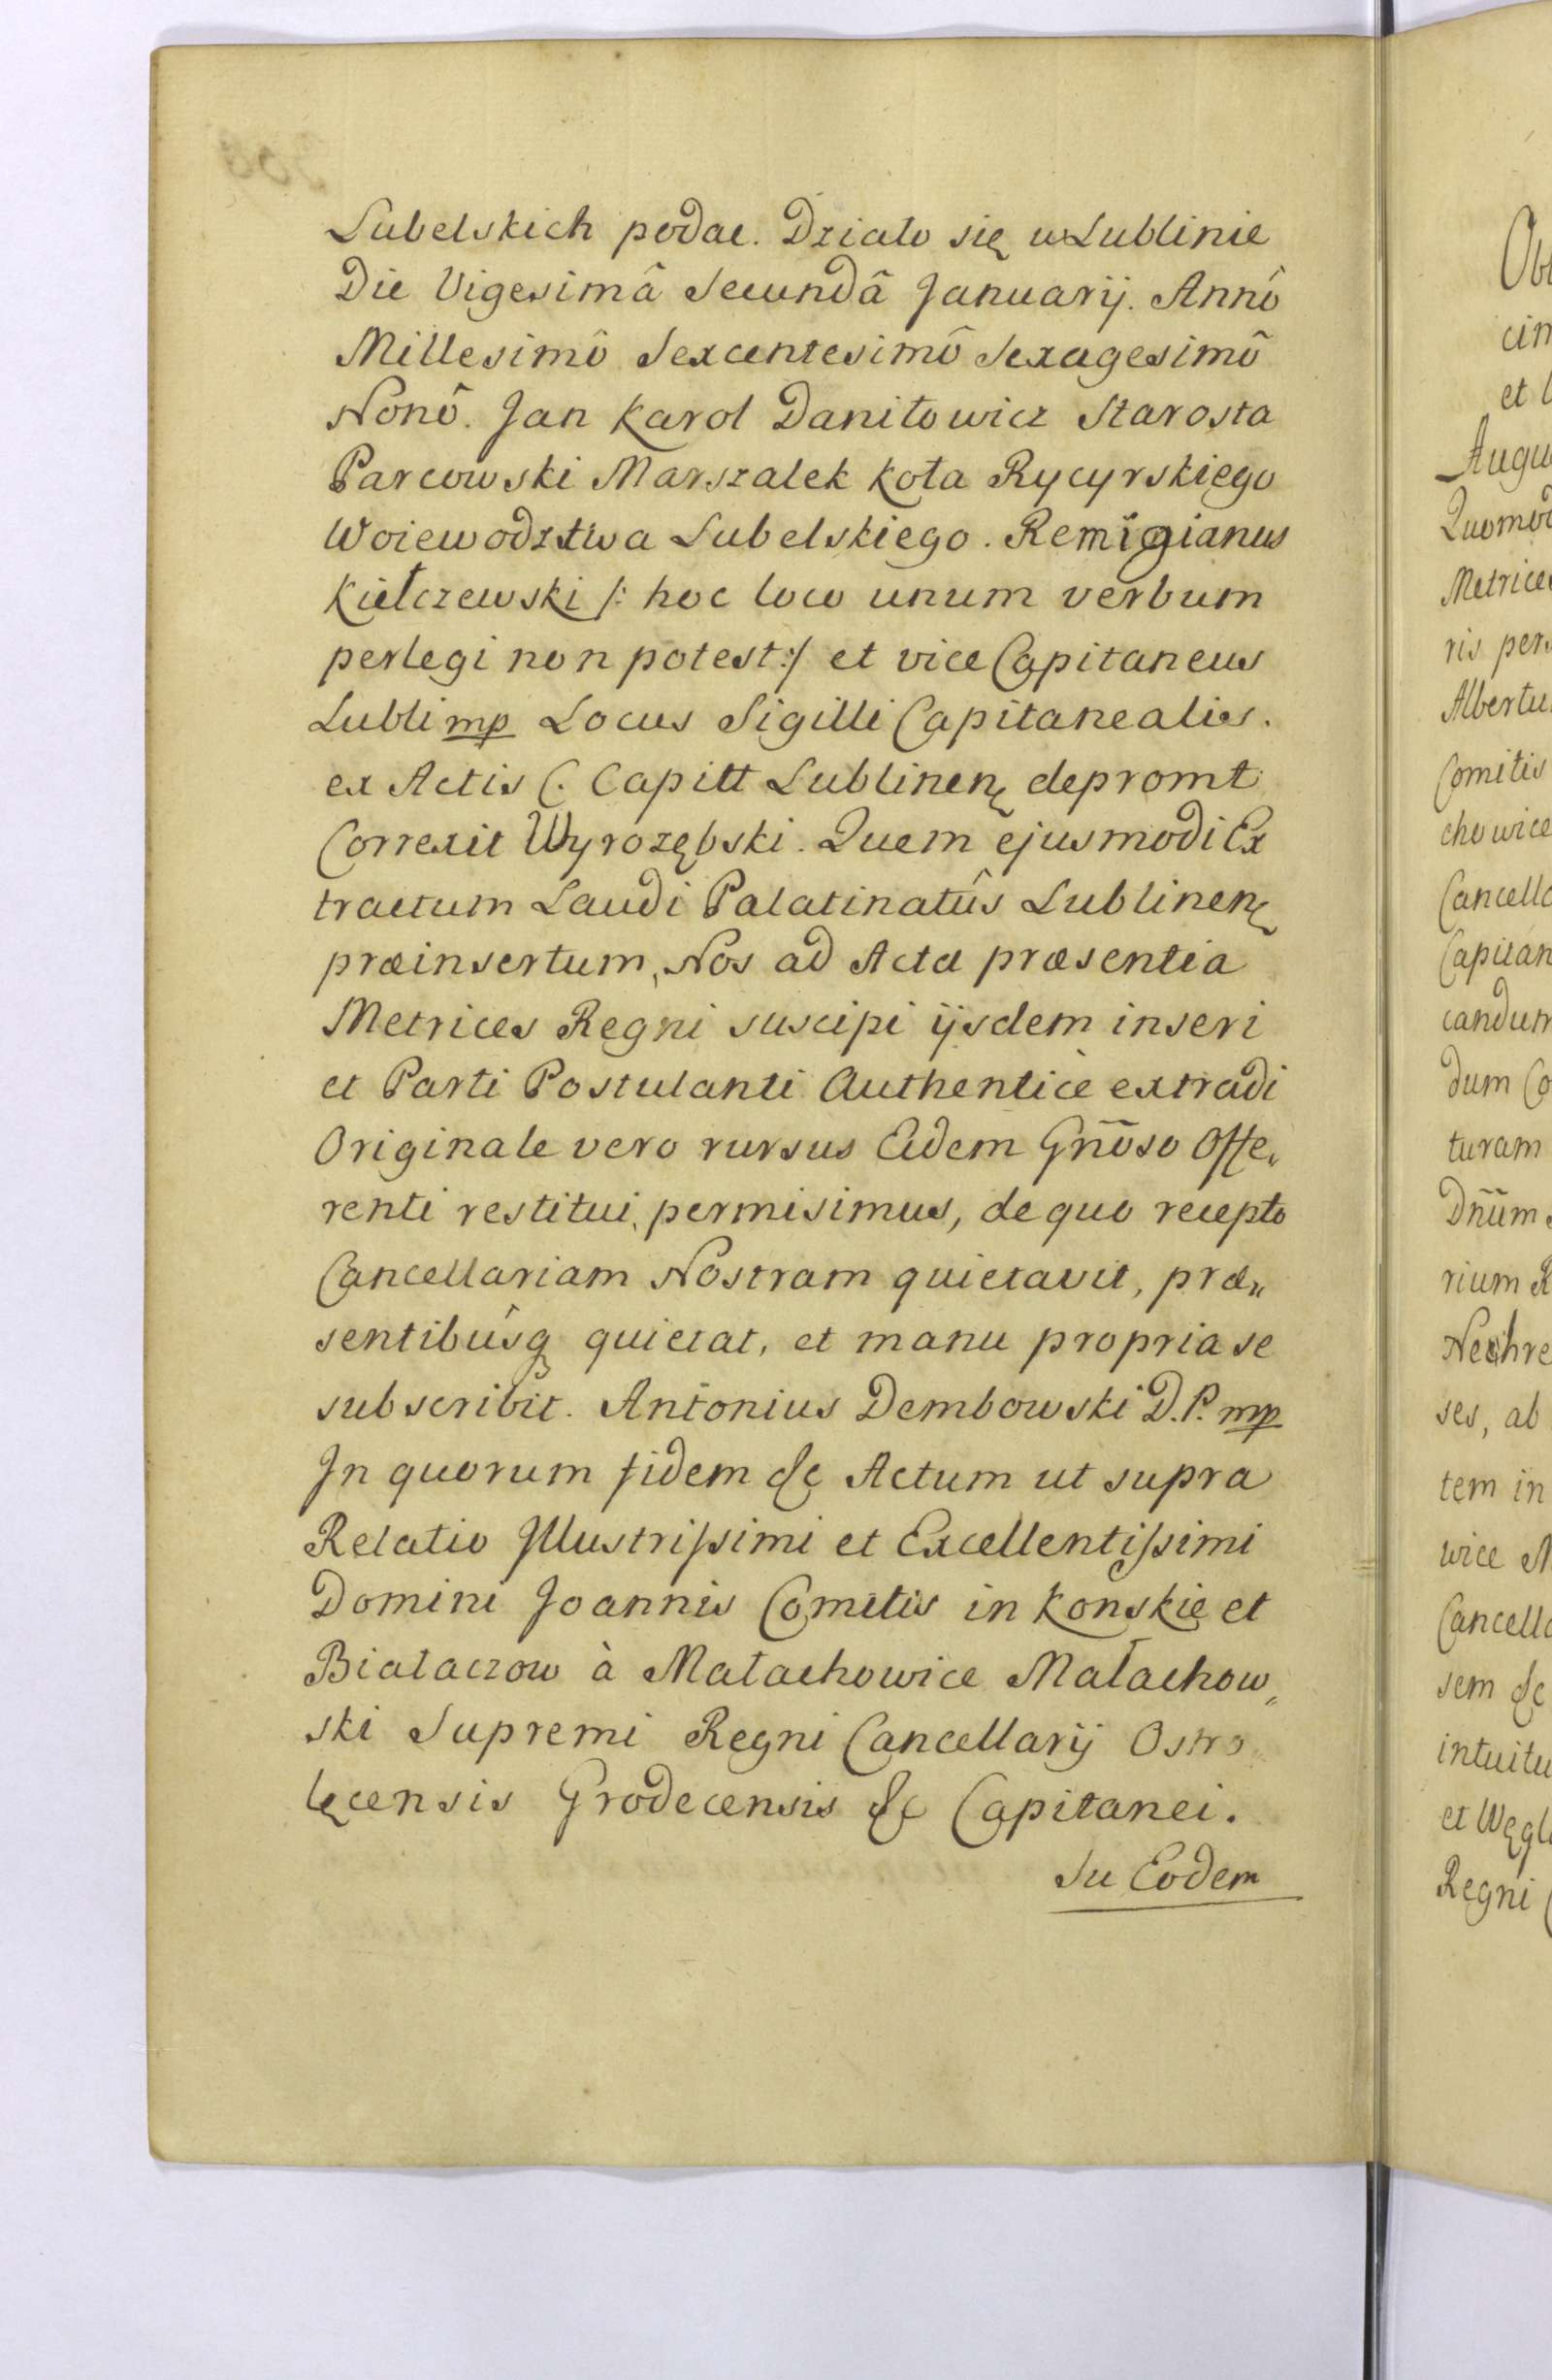 Lubelskich podac. Dzialo się w Lublinie
Die Vigesimâ Secundâ Januarij. Annô
Millesimô Sexcentesimô Sexagesimô
Nonô. Jan Karol Daniłowicz Starosta
Parcowski Marszalek Koła Rycyrskiego
Woiewodztwa Lubelskiego. Remigianus
Kiełczewski /: hoc loco unum verbum
perlegi non potest :/ et vice Capitaneus
Lubli mp Locus Sigilli Capitanealis.
ex Actis C. Capitt Lublinen depromt
Correxit Wyrozębski. Quem ejusmodi Ex
tractum Laudi Palatinatûs Lublinen
præinsertum, Nos ad Acta præsentia
Metrices Regni suscipi ijsdem inseri
et Parti Postulanti Authenticè extradi
Originale vero rursus Eidem Gñoso Offe„
renti restitui, permisimus, de quo recepto
Cancellariam Nostram quietavit, præ„
sentibûsq quietat, et manu propria se
subscribit. Antonius Dembowski D. P. mp
In quorum fidem &c Actum ut supra
Relatio Jllustrissimi et Excellentissimi
Domini Joannis Comitis in Konskie et
Bialaczow à Małachowice Małachow„
ski Supremi Regni Cancellarij Ostro
lęcensis Grodecensis &c Capitanei.
Su Eodem
Obl
cin
et
Augu
Quomod
Metrice
ris per
Albertu
Comitis
chowice
Cancella
Capitan
candum
dum Co
turam
Dñum
rium R
Nechre
ses, ab
tem in
wice M
Cancella
sem &c
intuitu
et Węgl
Regni
309